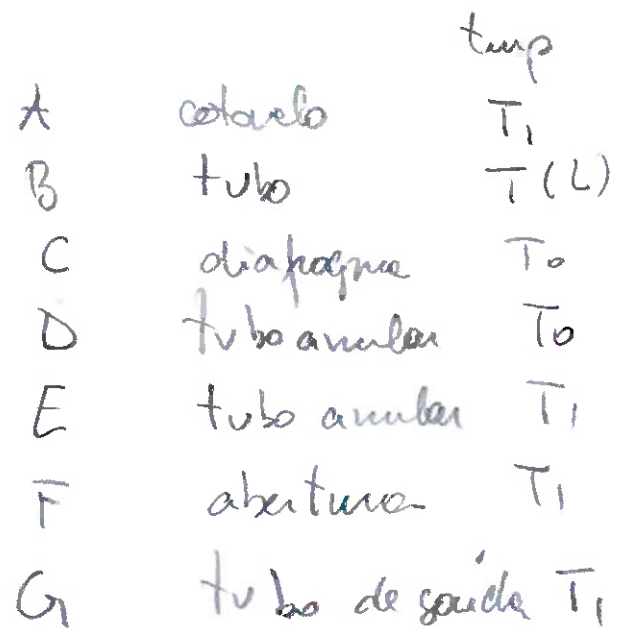 tmp
A cotovelo T₁
B tubo T(L)
C diafragma T₀
D tubo anular T₀
E tubo anular T₁
F abertura T₁
G tubo de saída T₁